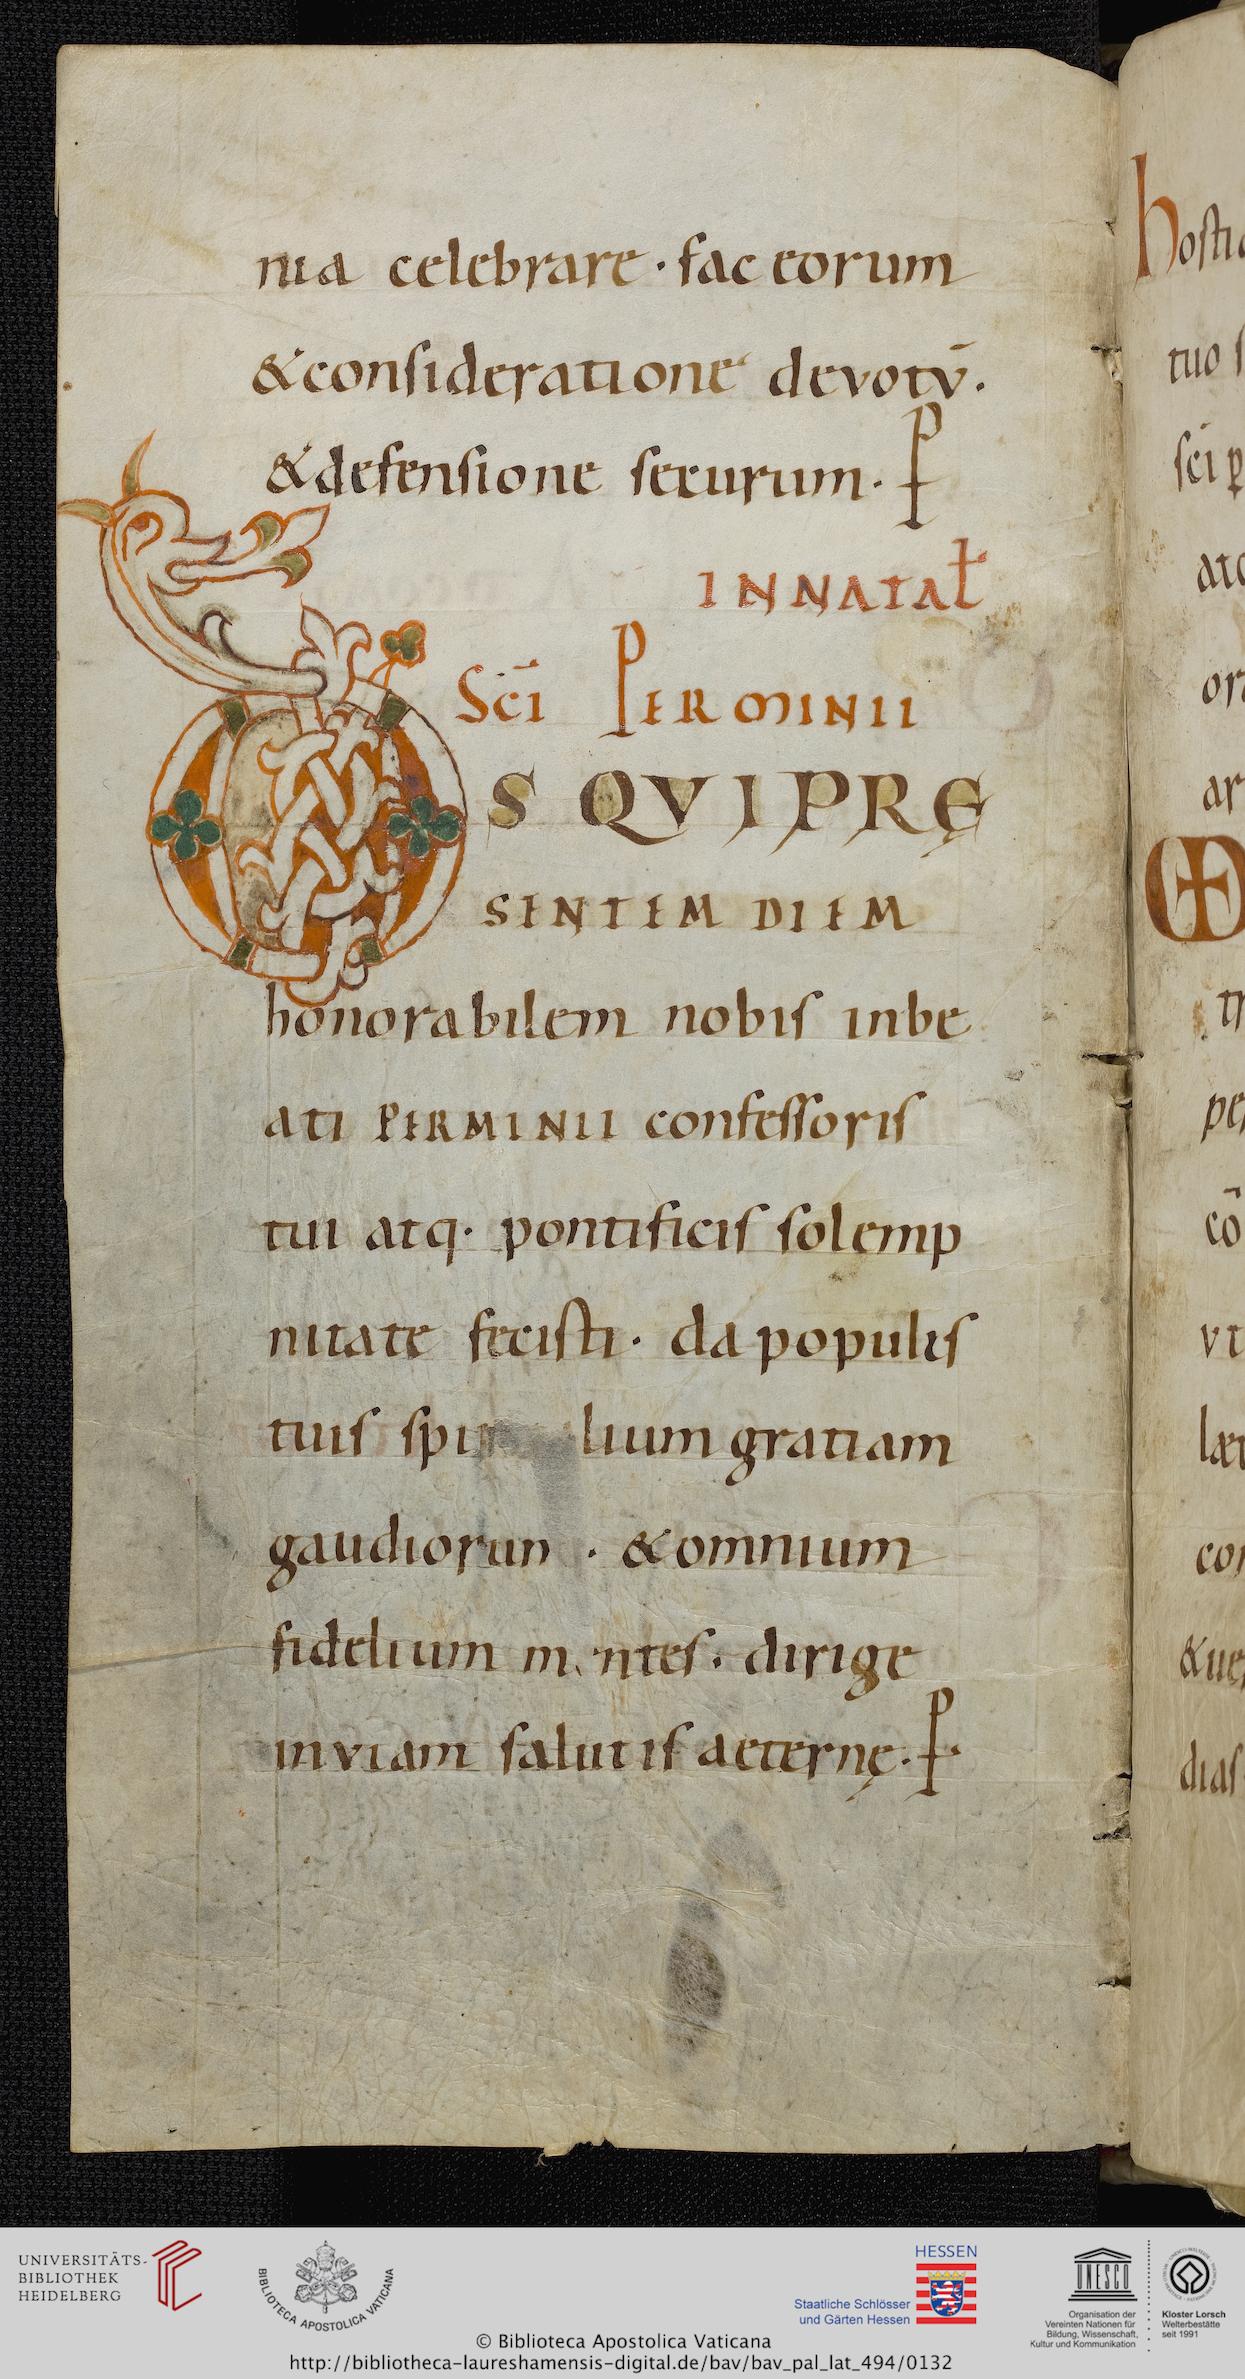 nia celebrare · fac eorum
& consideratione devotū.
& defensione securum. P
IN NATAŁ
Sc̄i PERMINII
DS QVI PRĘ
SENTEM DIEM
honorabilem nobis in be
ati PERMINII confessoris
tui atq· pontificis solemp
nitate fecisti · da populis
tuis lium gratiam
· & omnium
fidelium dirige
in viam salutis aeternę. P
hostia
tuo s
sc̄i ꝑ
atq
ora
ar
tr
per
cō
vt
læt
con
& ue
dias
UNIVERSITÄTS-
BIBLIOTHEK
HEIDELBERG
BIBLIOTECA APOSTOLICA VATICANA
HESSEN
Staatliche Schlösser
und Gärten Hessen
UNESCO
Organisation der
Vereinten Nationen für
Bildung, Wissenschaft,
Kultur und Kommunikation
Kloster Lorsch
Welterbestätte
seit 1991
© Biblioteca Apostolica Vaticana
http://bibliotheca-laureshamensis-digital.de/bav/bav_pal_lat_494/0132